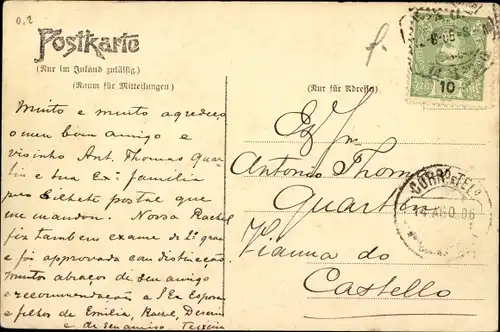 0.2
Postkarte
(Nur im Inland zulässig.)
(Raum für Mitteilungen)
(Nur für Adresse)
Muito e muito agradeço
o meu bom amigo e
visinho Ant. Thomas Quar-
e sua Exª familia
pelo bilhete postal que
me mandou. Nossa Rachel
fez tambem exame de 2º grau
e foi approvada com distincção
muitos abraços de seu amigo
e recommendação a S Ex Esposa
e filhos de Emilia, Rachel,
e de seu amigo Teixeira
Antonio Thom
Quart
Vianna do
Castello
10
CORREIO E TELº
14 AGO 06